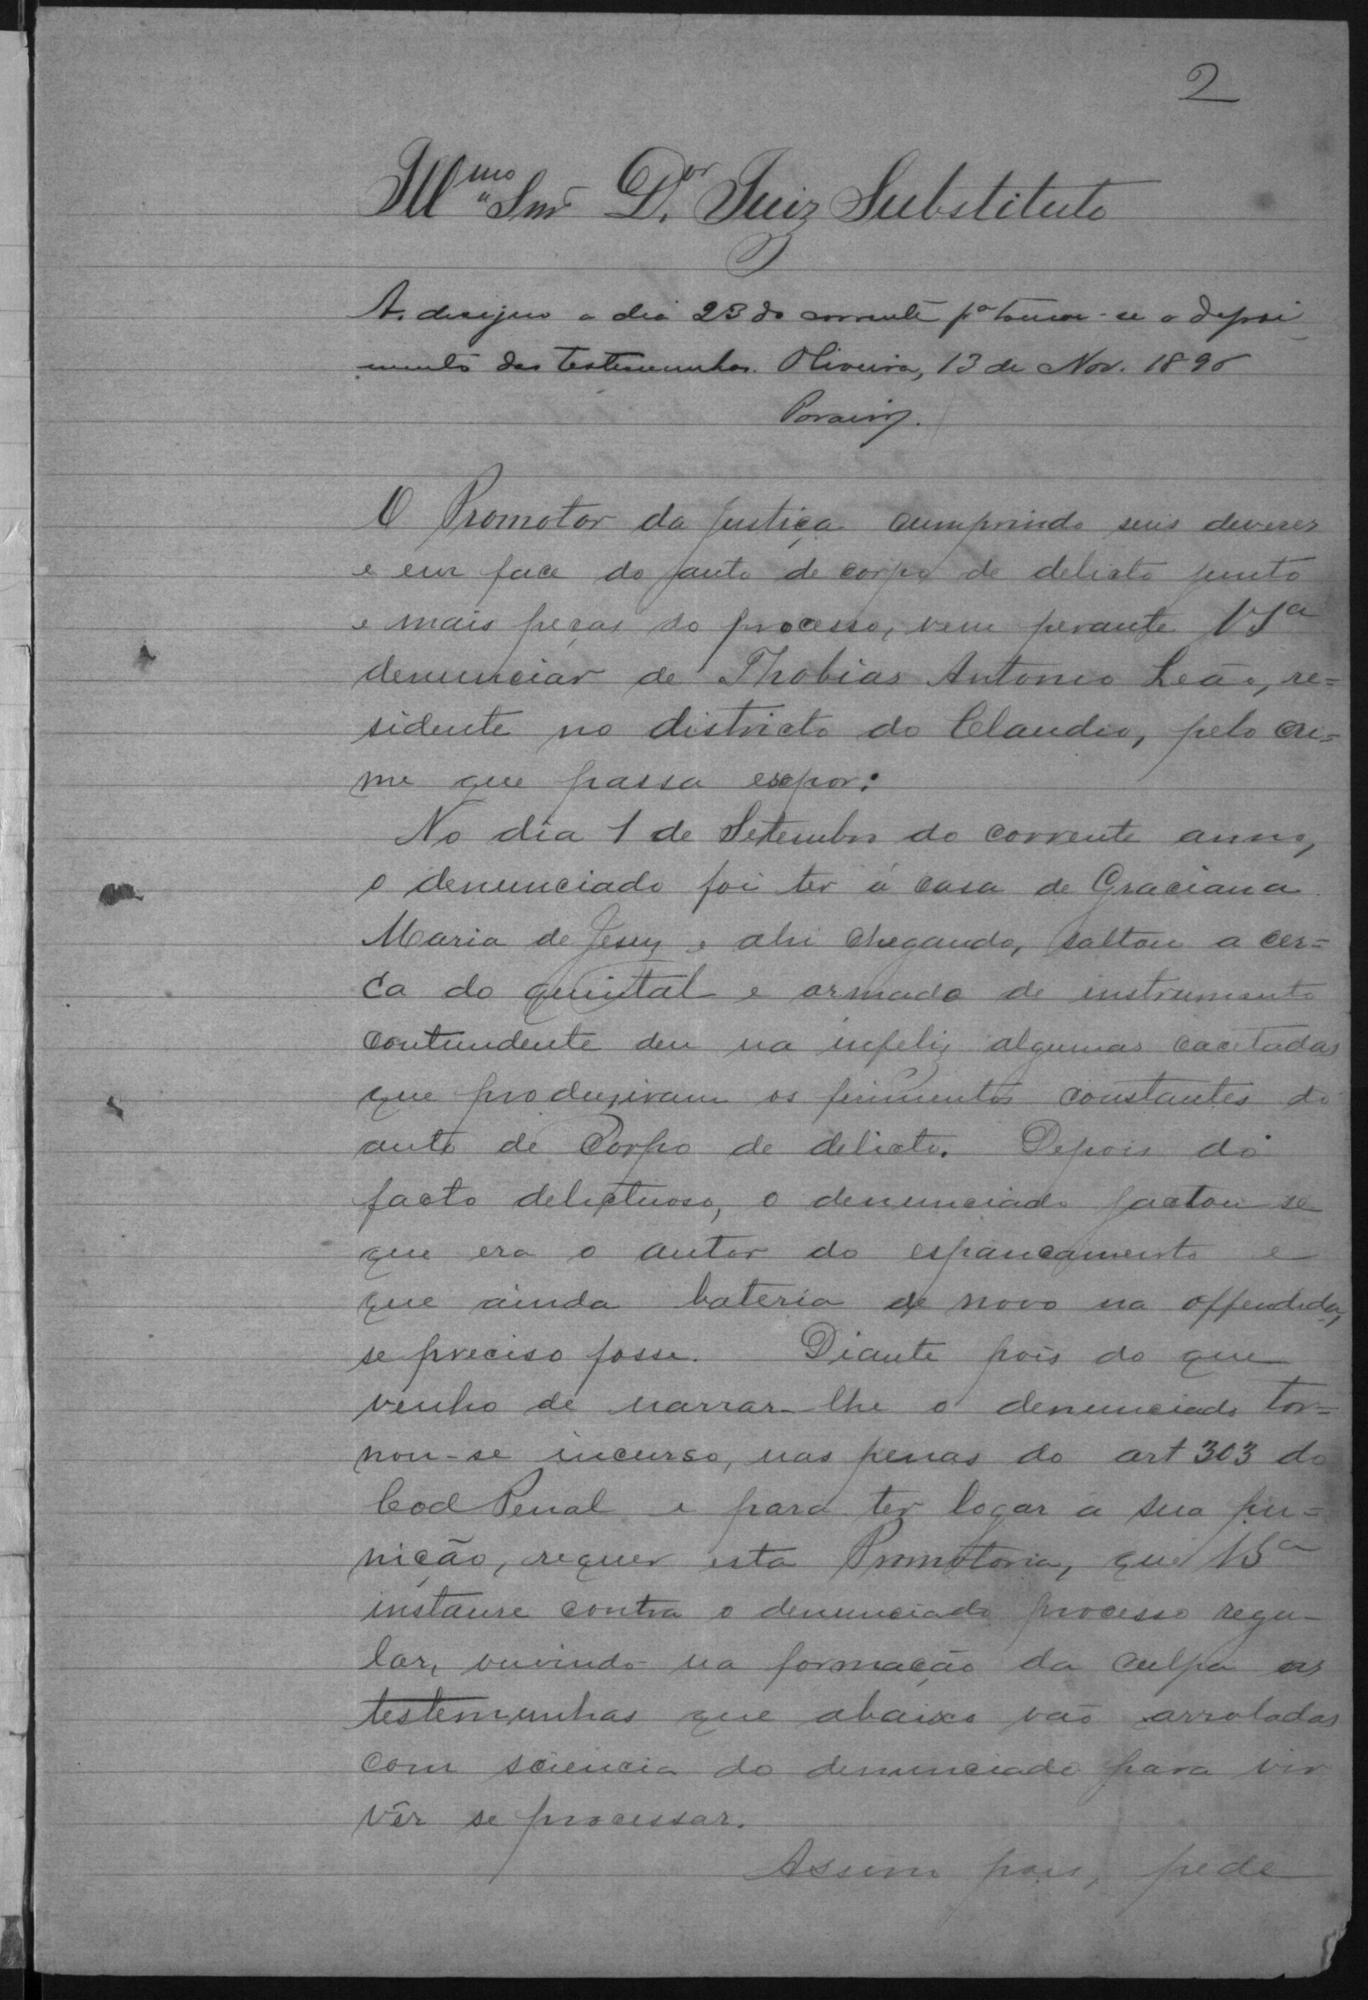 2
Ill.mo Snr D.or Juiz Substituto
A. designo o dia 23 do corrente pa tomar-se o depoi
mento das testemunhas. Oliveira, 13 de Nov. 189
O Promotor da Justiça cumprindo seus deveres
e em face do auto de corpo de delicto junto
e mais peças do processo, vem perante VSa
denunciar de Thobias Antonio Leão, re=
sidente no districto do Claudio, pelo cri=
me que passa expor:
No dia 1 de Setembro do corrente anno,
o denunciado foi ter á casa de Graciana
Maria de Jesuz e ahi chegando, saltou a cer=
ca do quintal e armado de instrumento
contundente deu na infeliz algumas cacetadas
que produziram os ferimentos constantes do
auto de Corpo de delicto. Depois do
facto delictuoso, o denunciado jactou se
que era o autor do espancamento e
que ainda bateria de novo na offendida,
se preciso fosse. Diante pois do que
venho de narrar-lhe o denunciado tor=
nou-se incurso, nas penas do art 303 do
Cod Penal e para ter logar a sua pu=
nição, requer esta Promotoria, que VSa
instaure contra o denunciado processo regu-
lar, ouvindo na formação da culpa as
testemunhas que abaixo vão arroladas
com sciencia do denunciado para vir
vêr se processar.
Assim pois, pede